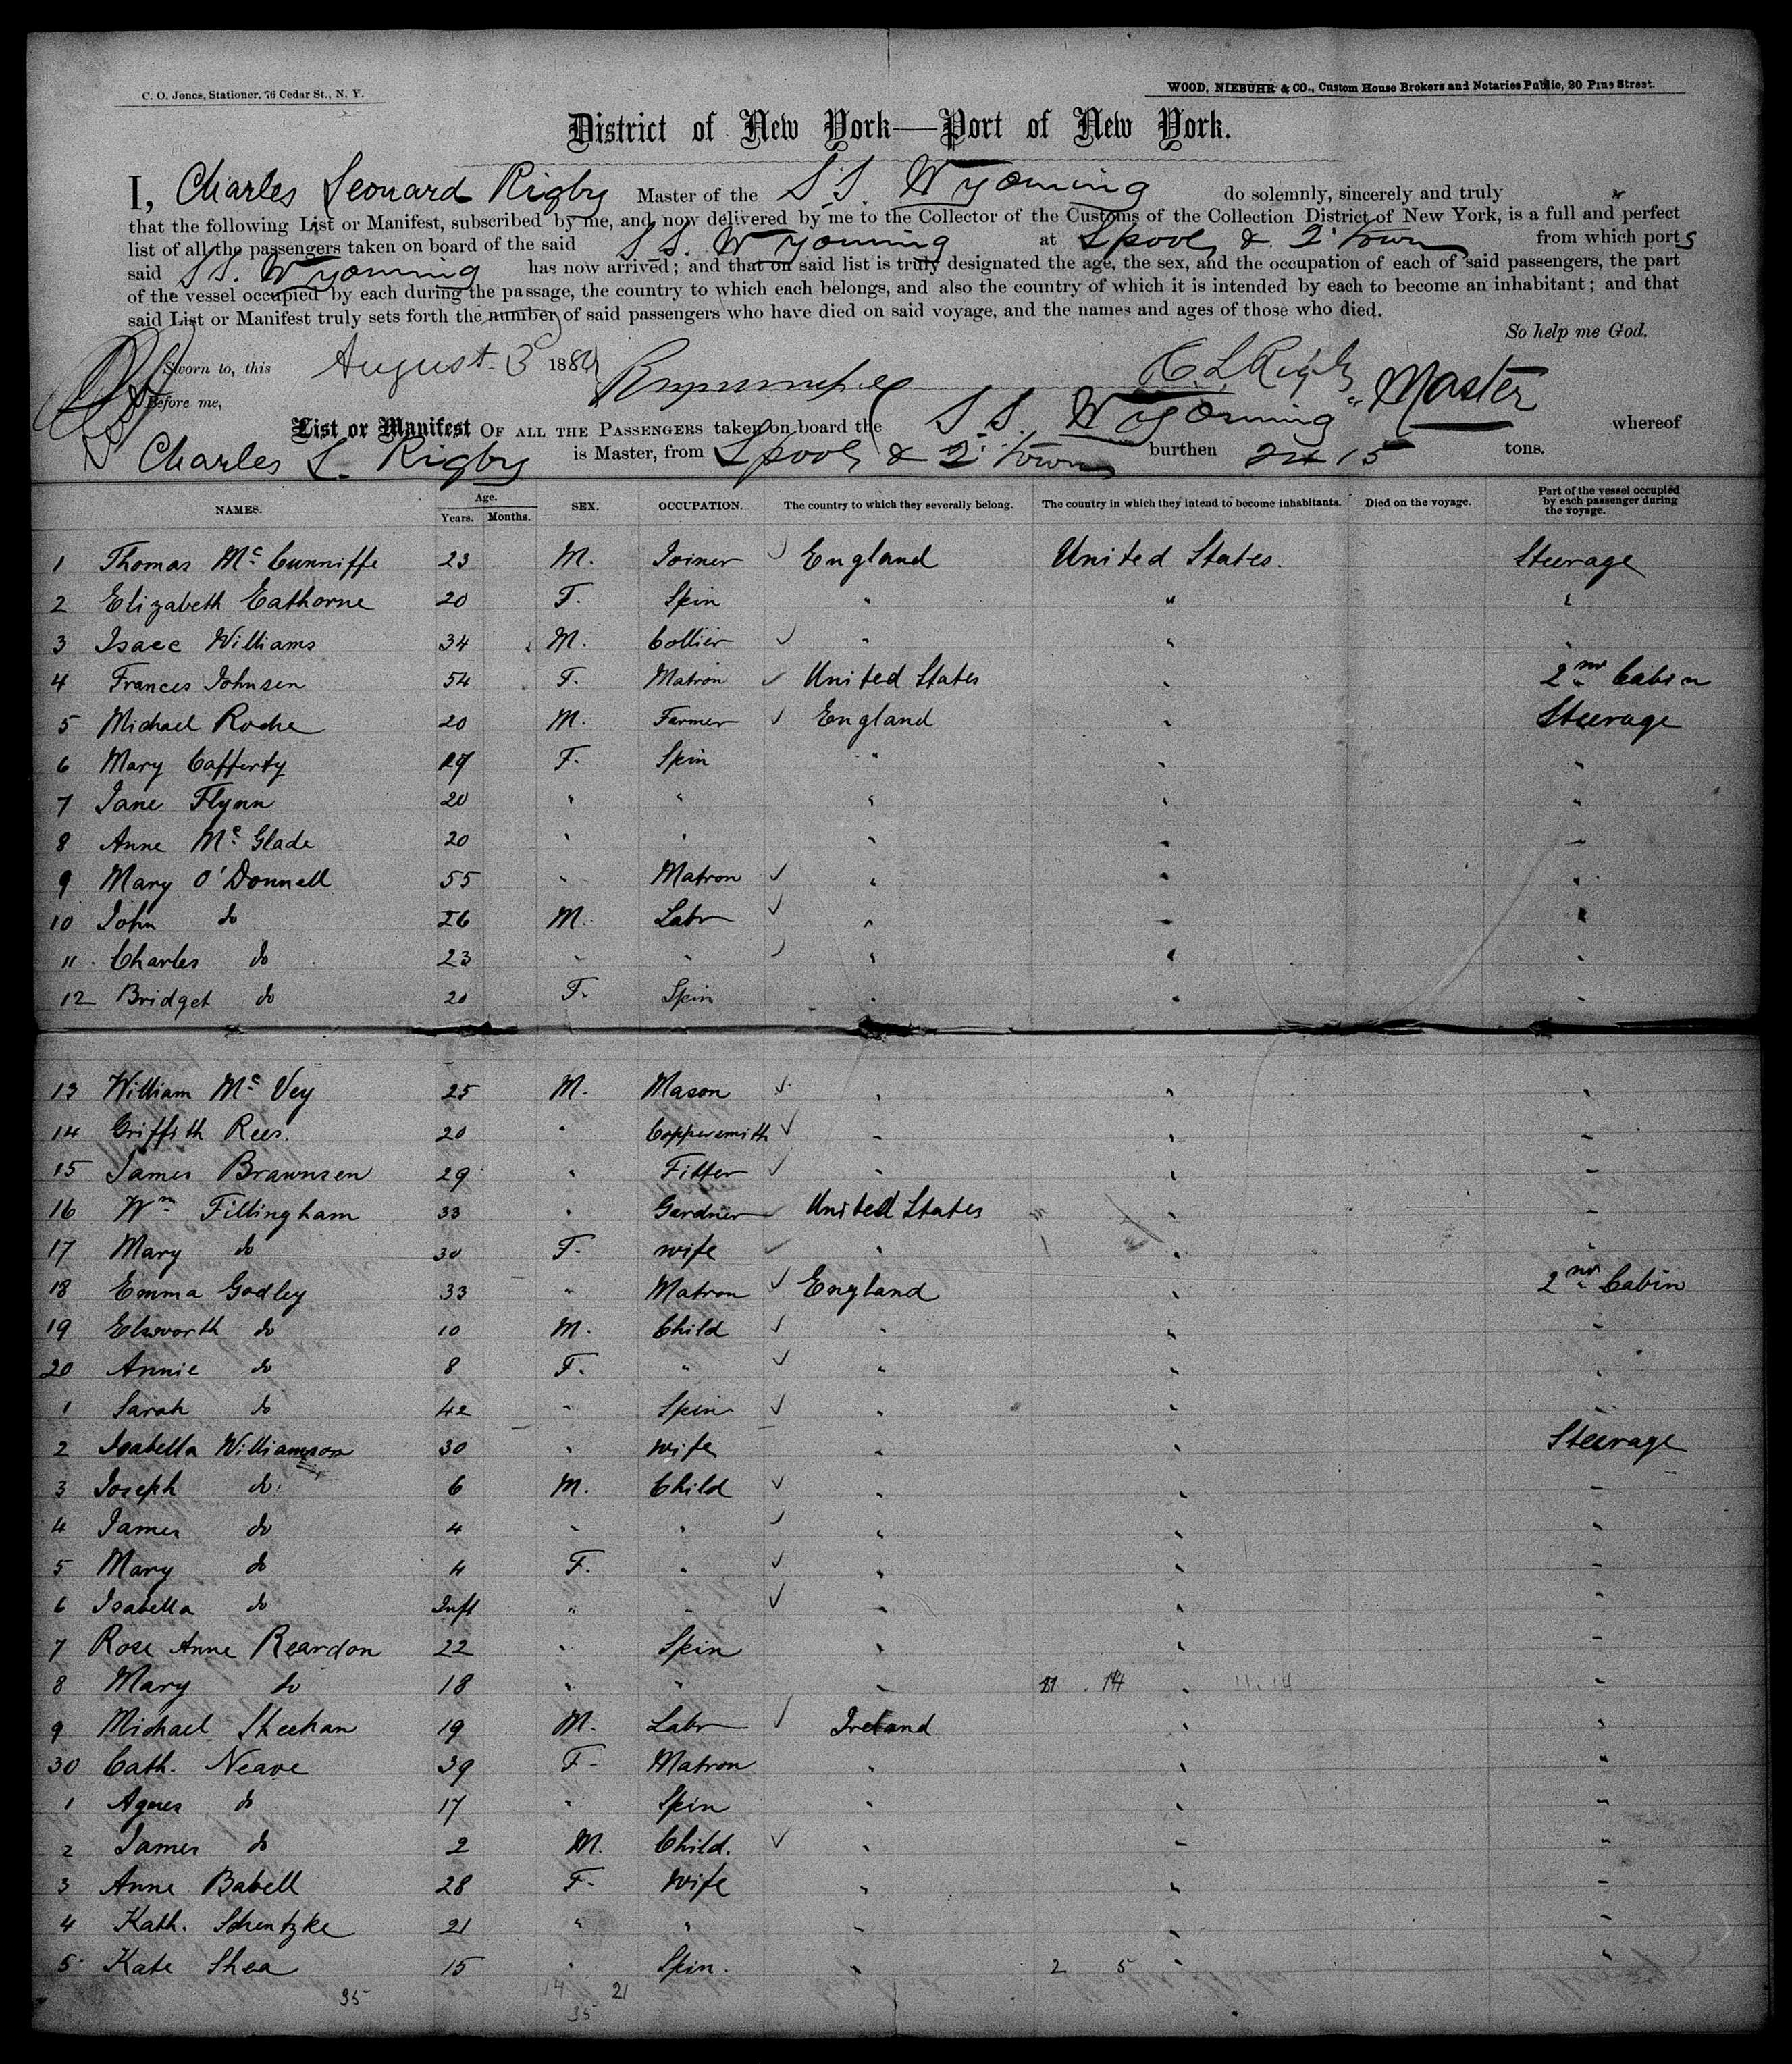 C. O. Jones, Stationer, 76 Cedar St., N. Y.
WOOD, NIEBUHR & CO., Custom House Brokers and Notaries Public, 20 Pine Street.
District of New York—Port of New York.
I, Charles Leonard Rigby Master of the S.S. Wyoming do solemnly, sincerely and truly
that the following List or Manifest, subscribed by me, and now delivered by me to the Collector of the Customs of the Collection District of New York, is a full and perfect
list of all the passengers taken on board of the said S.S. Wyoming at Lpool & Q'town from which ports
said S.S. Wyoming has now arrived; and that on said list is truly designated the age, the sex, and the occupation of each of said passengers, the part
of the vessel occupied by each during the passage, the country to which each belongs, and also the country of which it is intended by each to become an inhabitant; and that
said List or Manifest truly sets forth the number of said passengers who have died on said voyage, and the names and ages of those who died.
So help me God.
Sworn to, this August 3 188
C. L. Rigby Master
Before me,
List or Manifest OF ALL THE PASSENGERS taken on board the S.S. Wyoming whereof
Charles L. Rigby is Master, from Lpool & Q'town burthen 2415 tons.
NAMES. Age. Years. Months. SEX. OCCUPATION. The country to which they severally belong. The country in which they intend to become inhabitants. Died on the voyage. Part of the vessel occupied by each passenger during the voyage.
1 Thomas McCunniffe 23 M. Joiner ✓ England United States. Steerage
2 Elizabeth Eathorne 20 F. Spin " " "
3 Isace Williams 34 M. Collier ✓ " " "
4 Frances Johnsen 54 F. Matron ✓ United States " 2nd Cabin
5 Michael Roche 20 M. Farmer ✓ England " Steerage
6 Mary Cafferty 27 F. Spin " " "
7 Jane Flynn 20 " " " " "
8 Anne McGlade 20 " " " " "
9 Mary O'Donnell 55 " Matron ✓ " " "
10 John do 26 M. Labr ✓ " " "
11 Charles do 23 " " ✓ " " "
12 Bridget do 20 F. Spin " " "
13 William McVey 25 M. Mason ✓ " " "
14 Griffith Rees. 20 " Coppersmith ✓ " " "
15 James Brawnsen 29 " Fitter ✓ " " "
16 Wm Fillingham 33 " Gardner ✓ United States " "
17 Mary do 30 F. wife ✓ " " "
18 Emma Godley 33 " Matron ✓ England " 2nd Cabin
19 Elsworth do 10 M. Child ✓ " " "
20 Annie do 8 F. " ✓ " " "
1 Sarah do 42 " Spin ✓ " " "
2 Isabella Williamson 30 " wife " " Steerage
3 Joseph do 6 M. Child ✓ " " "
4 James do 4 " " ✓ " " "
5 Mary do 4 F. " ✓ " " "
6 Isabella do Inft " " ✓ " " "
7 Rose Anne Reardon 22 " Spin " " "
8 Mary do 18 " " " 14 " 11.14 "
9 Michael Sheehan 19 M. Labr ✓ Ireland " "
30 Cath. Neave 39 F. Matron " " "
1 Agnes do 17 " Spin " " "
2 James do 2 M. Child. ✓ " " "
3 Anne Babell 28 F. Wife " " "
4 Kath. Schentzke 21 " " " " "
5 Kate Shea 15 " Spin. " 2 5 " "
35 14 21
35